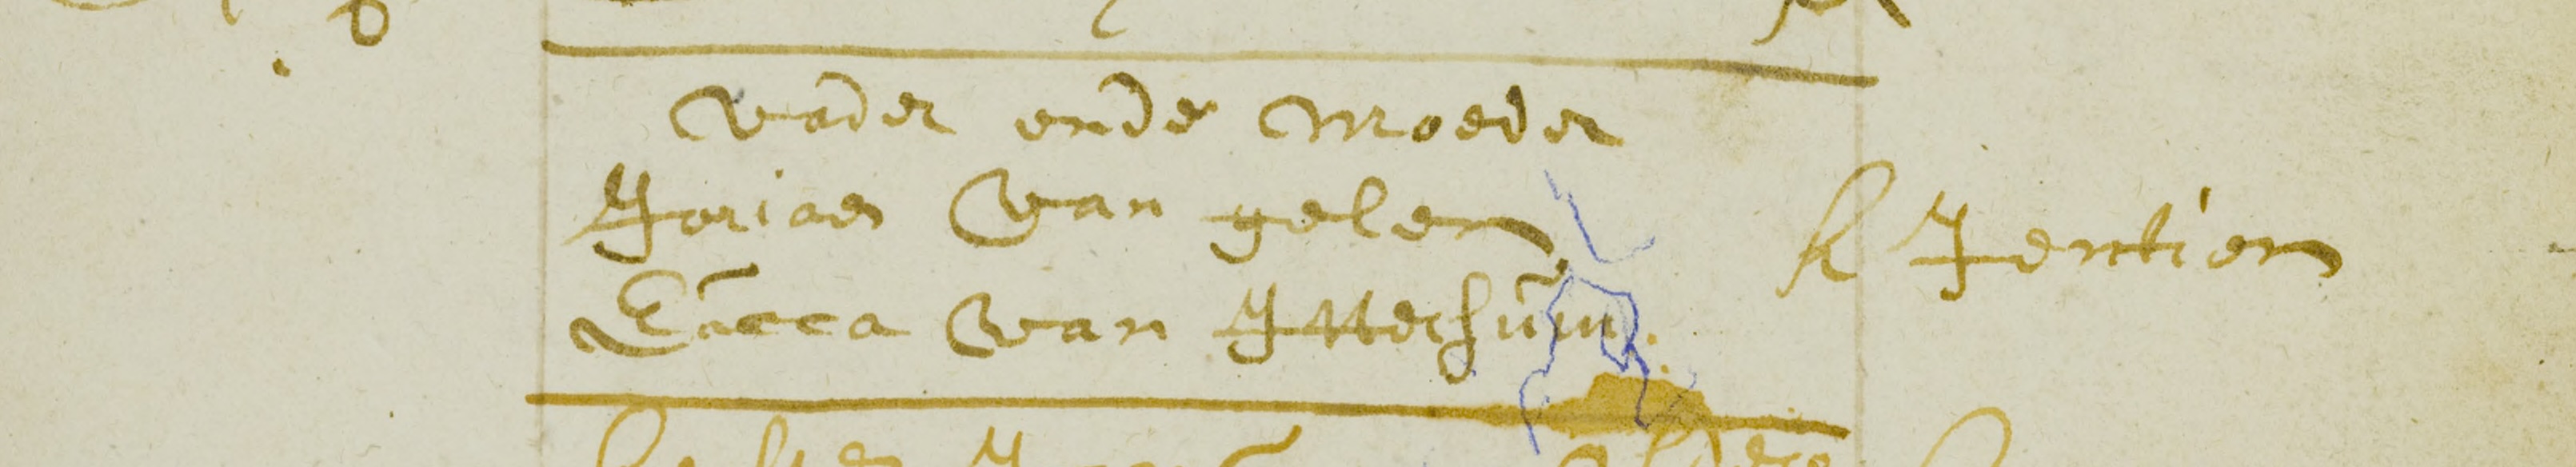 vader ende moeder
Joriaen van gelen
Eacca van Ittersum.
k Jentien